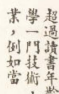 超過讀書年齡
學一門技術，
業，例如當